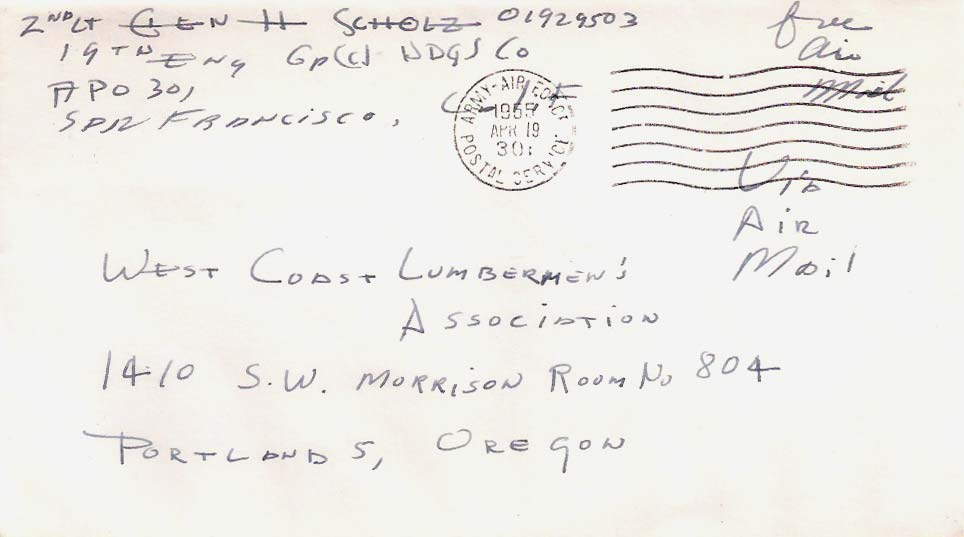 2ND LT GLEN H SCHOLZ 01929503
19TH ENG Gp(c) HDQS Co
APO 301
SAN FRANCISCO, CALIF
free
air
mail
ARMY-AIR FORCE
1955
APR 19
301
POSTAL SERVICE
Via
AIR
Mail
WEST COAST LUMBERMEN'S
ASSOCIATION
1410 S.W. MORRISON ROOM No 804
PORTLAND 5, OREGON